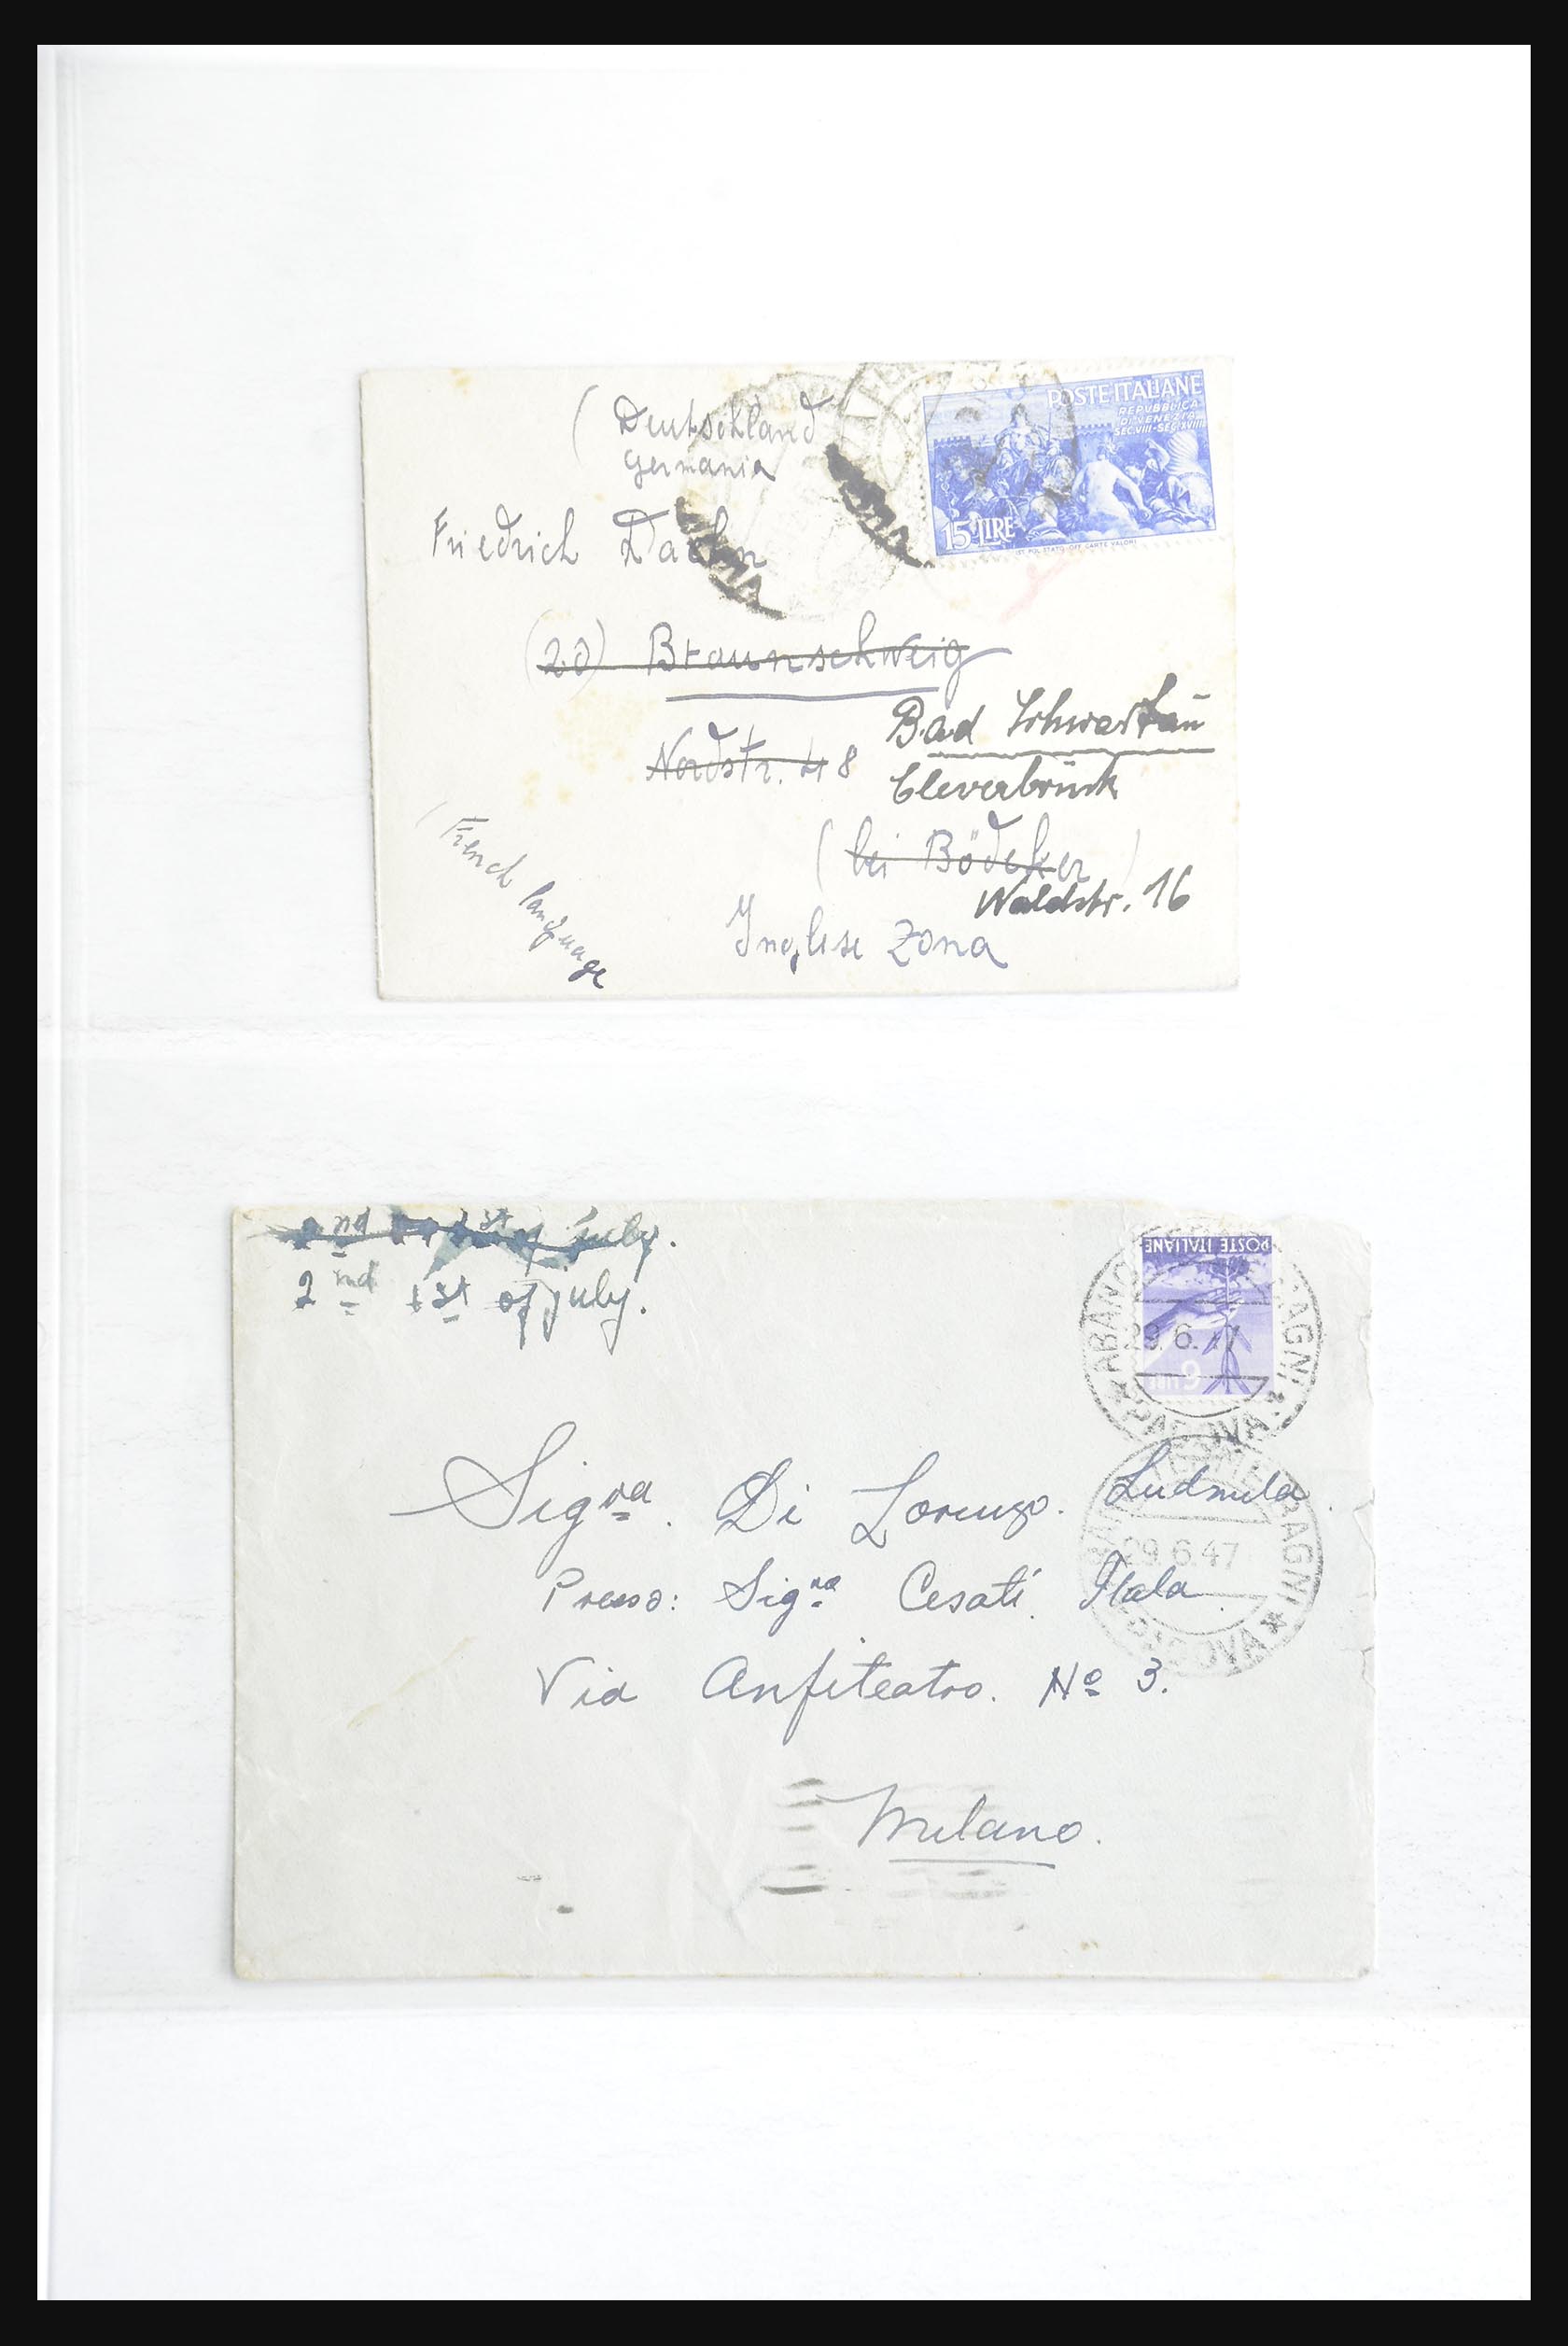 ( Deutschland
Germania
Friedrich Daehn
(20) Braunschweig
Nordstr. 48
Bad Schwartau
Cleverbrück
( bei Bödeker )
Waldstr. 16
Inglese Zona
( French language
POSTE ITALIANE
REPVBBLICA
DI VENEZIA
SEC.VIII-SEC.XVIII
15 LIRE
IST. POL. STATO OFF. CARTE VALORI
2nd 1st of july.
2nd 1st of july.
POSTE ITALIANE
6 LIRE
ABANO BAGNI
29.6.47
PADOVA
Sigra. Di Lorenzo. Ludmila.
Presso: Sigra Cesati. Itala.
Via Anfiteatro. No 3.
Milano.
BAGNI
29.6.47
PADOVA